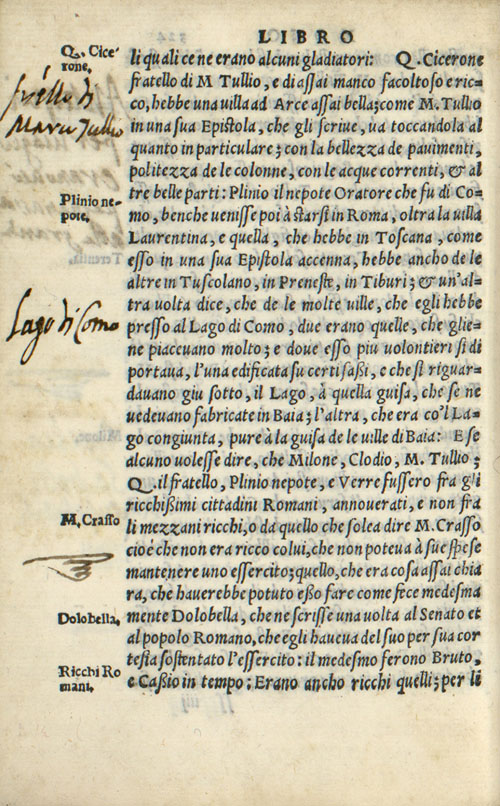 LIBRO
Q. Cice-
rone.
frẽllo di
Marco Tullio
Plinio ne-
pote.
Lago di Como
M. Crasso
Dolobella.
Ricchi Ro
mani.
li quali ce ne erano alcuni gladiatori: Q. Cicerone
fratello di M Tullio, e di assai manco facoltoso e ric-
co, hebbe una uilla ad Arce assai bella; come M. Tullio
in una sua Epistola, che gli scriue, ua toccandola al
quanto in particulare; con la bellezza de pauimenti,
politezza de le colonne, con le acque correnti, & al
tre belle parti: Plinio il nepote Oratore che fu di Co-
mo, benche uenisse poi à starsi in Roma, oltra la uilla
Laurentina, e quella, che hebbe in Toscana, come
esso in una sua Epistola accenna, hebbe ancho de le
altre in Tuscolano, in Preneste, in Tiburi; & un'al-
tra uolta dice, che de le molte uille, che egli hebbe
presso al Lago di Como, due erano quelle, che glie-
ne piaceuano molto; e doue esso piu uolontieri si di
portaua, l'una edificata su certi saßi, e che si riguar-
dauano giu sotto, il Lago, à quella guisa, che se ne
uedeuano fabricate in Baia; l'altra, che era co'l La-
go congiunta, pure à la guisa de le uille di Baia: E se
alcuno uolesse dire, che Milone, Clodio, M. Tullio;
Q. il fratello, Plinio nepote, e Verre fussero fra gli
ricchißimi cittadini Romani, annouerati, e non fra
li mezzani ricchi, o da quello che solea dire M. Crasso
cioè che non era ricco colui, che non poteua à sue spese
mantenere uno essercito; quello, che era cosa assai chia
ra, che hauerebbe potuto eßo fare come fece medesma
mente Dolobella, che ne scrisse una uolta al Senato et
al popolo Romano, che egli haueua del suo per sua cor
tesia sostentato l'essercito: il medesmo ferono Bruto,
e Caßio in tempo: Erano ancho ricchi quelli; per li